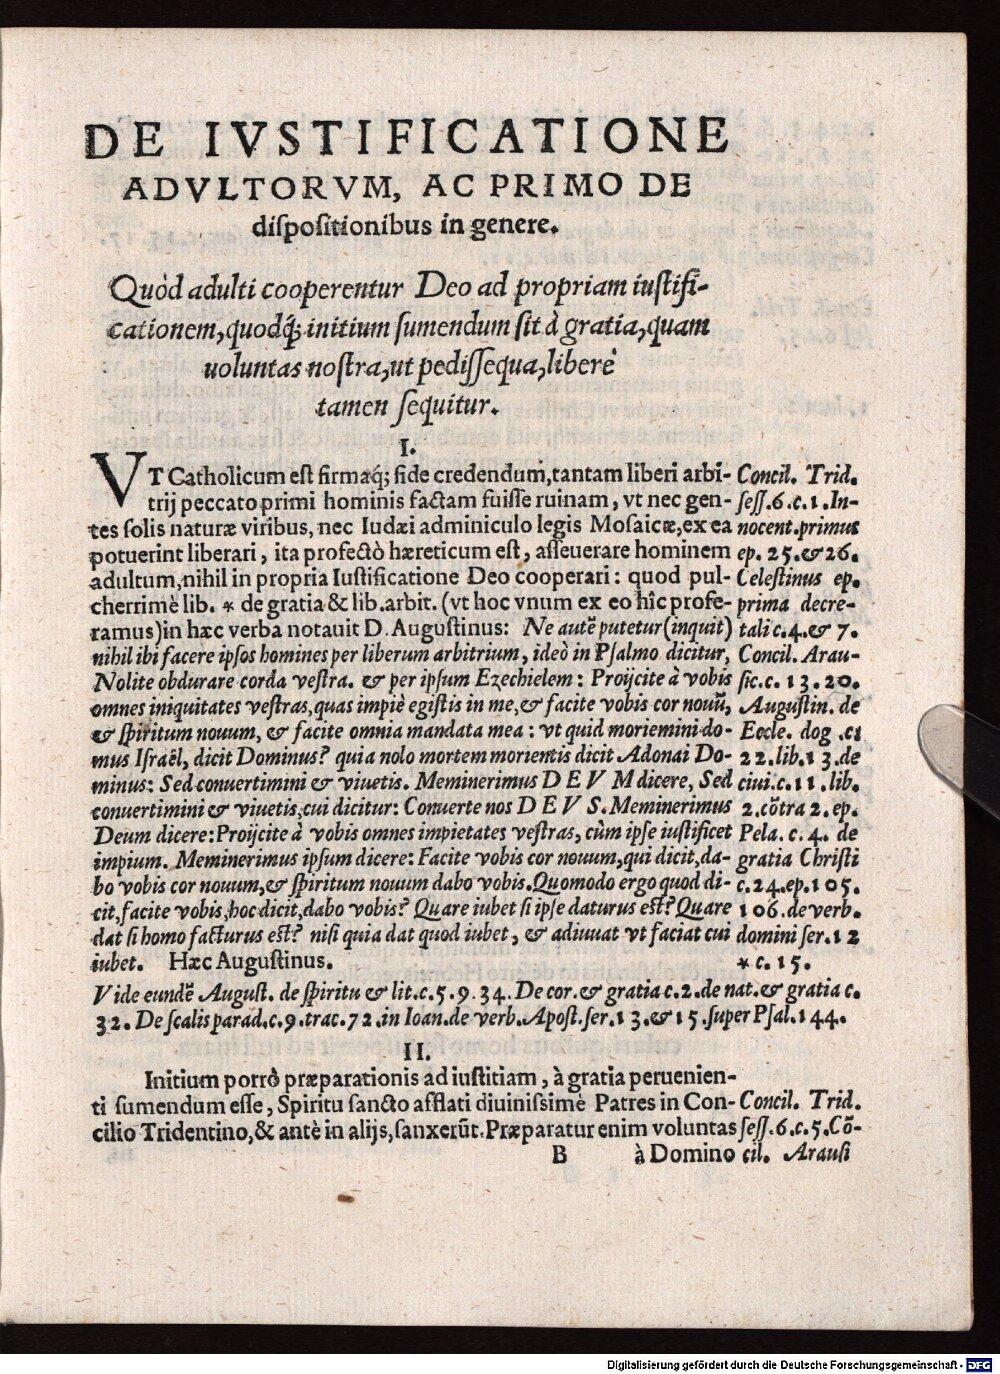 DE IVSTIFICATIONE
ADVLTORVM, AC PRIMO DE
dispositionibus in genere.
Quòd adulti cooperentur Deo ad propriam iustifi-
cationem, quodq́; initium sumendum sit à gratia, quam
uoluntas nostra, ut pedissequa, liberè
tamen sequitur.
I.
VT Catholicum est firmaq́; fide credendum, tantam liberi arbi-
trij peccato primi hominis factam fuisse ruinam, vt nec gen-
tes solis naturæ viribus, nec Iudæi adminiculo legis Mosaicæ, ex ea
potuerint liberari, ita profectò hæreticum est, asseuerare hominem
adultum, nihil in propria Iustificatione Deo cooperari: quod pul-
cherrimè lib. * de gratia & lib. arbit. (vt hoc vnum ex eo hîc profe-
ramus) in hæc verba notauit D. Augustinus: Ne autē putetur (inquit)
nihil ibi facere ipsos homines per liberum arbitrium, ideò in Psalmo dicitur,
Nolite obdurare corda vestra. & per ipsum Ezechielem: Proijcite à vobis
omnes iniquitates vestras, quas impiè egistis in me, & facite vobis cor nouū,
& spiritum nouum, & facite omnia mandata mea: vt quid moriemini do-
mus Israël, dicit Dominus? quia nolo mortem morientis dicit Adonai Do-
minus: Sed conuertimini & viuetis. Meminerimus DEVM dicere, Sed
conuertimini & viuetis, cui dicitur: Conuerte nos DEVS. Meminerimus
Deum dicere: Proijcite à vobis omnes impietates vestras, cùm ipse iustificet
impium. Meminerimus ipsum dicere: Facite vobis cor nouum, qui dicit, da-
bo vobis cor nouum, & spiritum nouum dabo vobis. Quomodo ergo quod di-
cit, facite vobis, hoc dicit, dabo vobis? Quare iubet si ipse daturus est? Quare
dat si homo facturus est? nisi quia dat quod iubet, & adiuuat vt faciat cui
iubet. Hæc Augustinus.
Concil. Trid.
sess. 6. c. 1. In-
nocent. primus
ep. 25. & 26.
Celestinus ep.
prima decre-
tali c. 4. & 7.
Concil. Arau-
sic. c. 13. 20.
Augustin. de
Eccle. dog. ca
22. lib. 13. de
ciui. c. 11. lib.
2. cōtra 2. ep.
Pela. c. 4. de
gratia Christi
c. 24. ep. 105.
106. de verb.
domini ser. 12
* c. 15.
Vide eundē August. de spiritu & lit. c. 5. 9. 34. De cor. & gratia c. 2. de nat. & gratia c.
32. De scalis parad. c. 9. trac. 72. in Ioan. de verb. Apost. ser. 13. & 15. super Psal. 144.
II.
Initium porrò præparationis ad iustitiam, à gratia peruenien-
ti sumendum esse, Spiritu sancto afflati diuinissimè Patres in Con-
cilio Tridentino, & antè in alijs, sanxerūt. Præparatur enim voluntas
Concil. Trid.
sess. 6. c. 5. Cō-
cil. Arausi
B à Domino
Digitalisierung gefördert durch die Deutsche Forschungsgemeinschaft - DFG